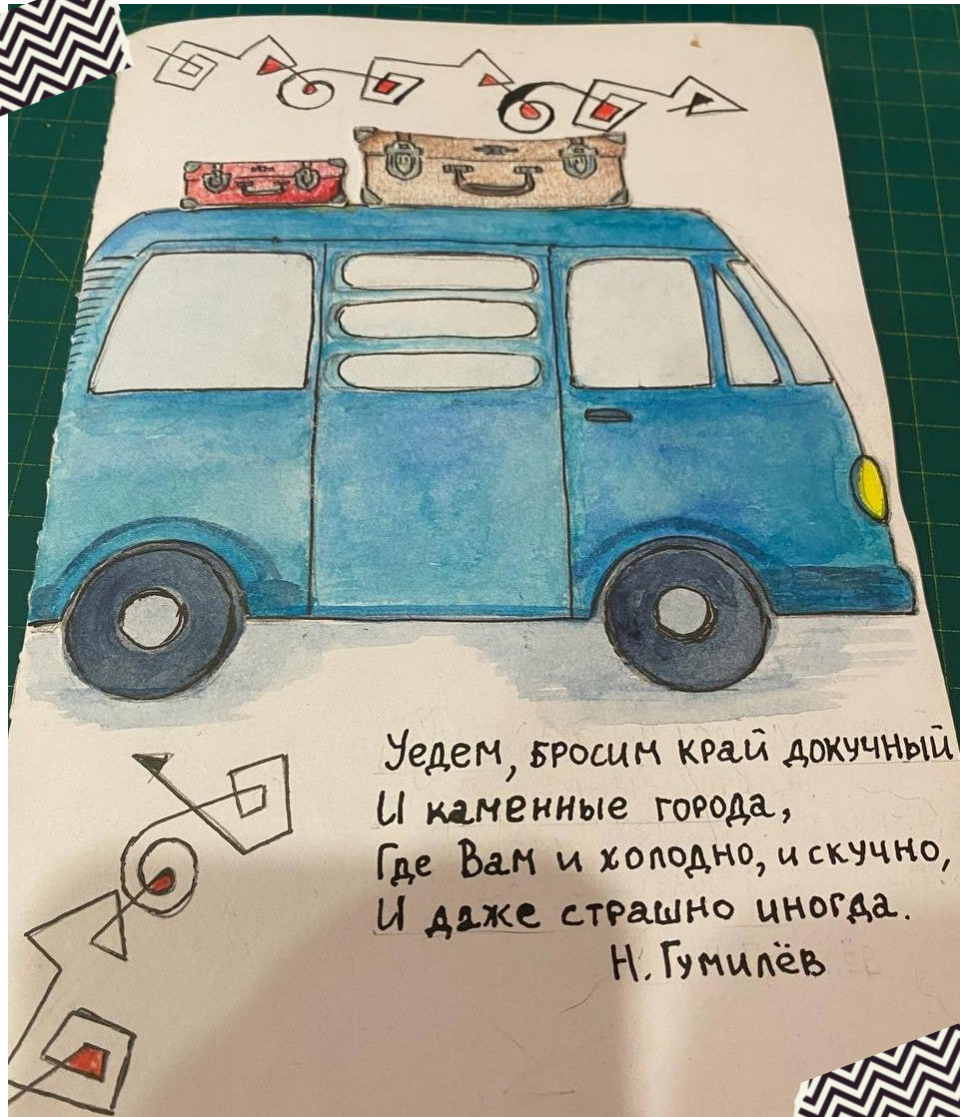 Уедем, бросим край докучный
И каменные города,
Где Вам и холодно, и скучно,
И даже страшно иногда.
Н. Гумилёв